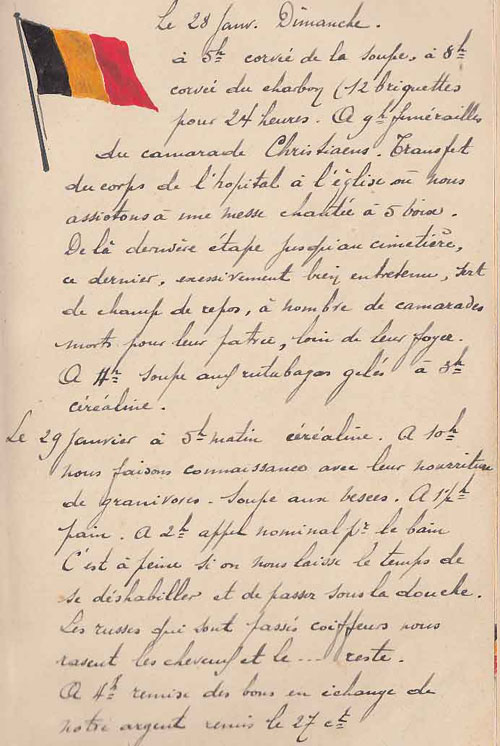 Le 28 Janv. Dimanche.
à 5h corvée de la soupe, à 8h
corvée du charbon (12 briquettes
pour 24 heures. A 9h funérailles
du camarade Christiaens. Transfet
du corps de l'hopital à l'église où nous
assistons à une messe chantée à 5 voix.
De là dernière étape jusqu'au cimetière,
ce dernier, excessivement bien entretenu, sert
de champ de repos, à nombre de camarades
morts pour leur patrie, loin de leur foyer.
A 11h soupe aux rutabagas gelés à 3h
céréaline.
Le 29 Janvier à 5h matin céréaline. A 10h
nous faisons connaissance avec leur nourriture
de granivores - soupe aux vesces. A
pain. A 2h appel nominal pr le bain
C'est à peine si on nous laisse le temps de
se déshabiller et de passer sous la douche.
Les russes qui sont passés coiffeurs nous
rasent les cheveux et le ... reste.
A 4h remise des bons en échange de
notre argent remis le 27 ct